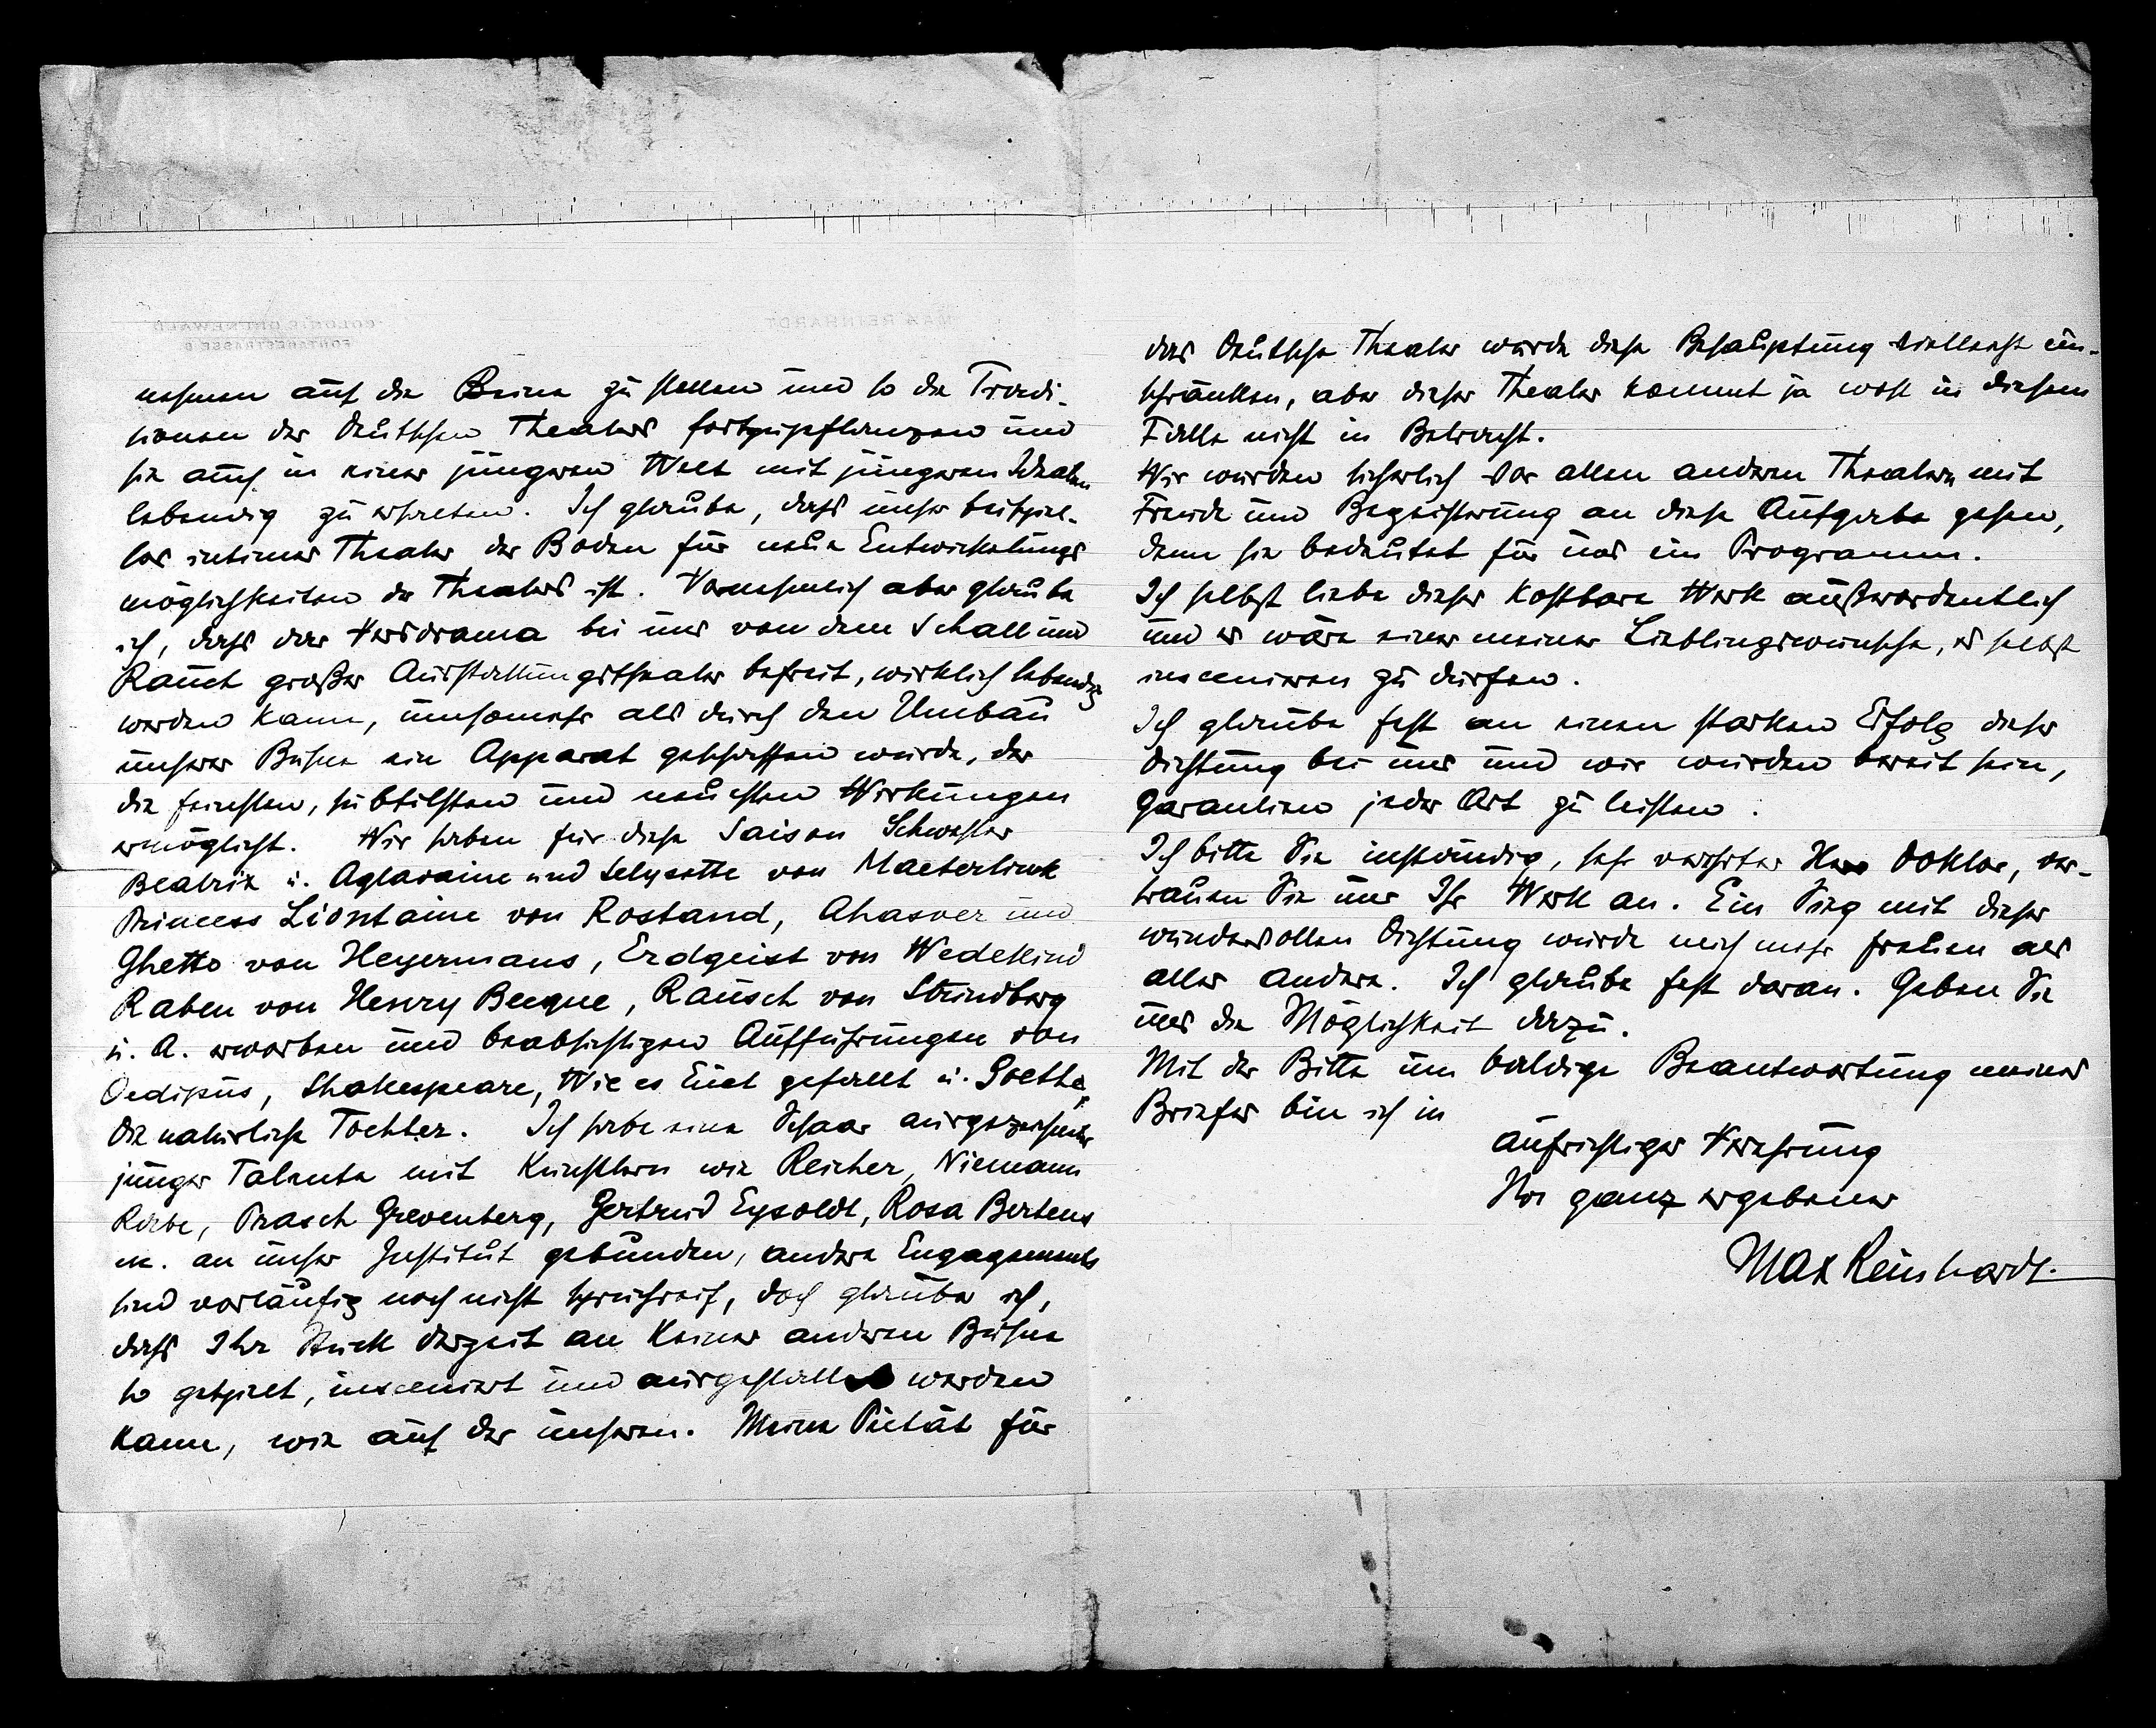 nehmen auf die Beine zu stellen und so die Tradi-
tionen des Deutschen Theaters fortzupflanzen und
sie auch in einer jüngeren Welt mit jüngeren Idealen
lebendig zu erhalten. Ich glaube, dass unser beispiel-
los intimes Theater der Boden für neue Entwickelungs
möglichkeiten des Theaters ist. Vornehmlich aber glaube
ich, dass das Versdrama bei uns von dem Schall und
Rauch großer Ausstattungstheater befreit, wirklich lebendig
werden kann, umsomehr als durch den Umbau
unserer Bühne ein Apparat geschaffen wurde, der
die feinsten, subtilsten und neuesten Wirkungen
ermöglicht. Wir haben für diese Saison Schwester
Beatrix u. Aglavaine und Selysette von Maeterlinck
Princess Liontaine von Rostand, Ahasver und
Ghetto von Heyermans, Erdgeist von Wedekind
Raben von Henry Becque, Rausch von Strindberg
u. A. erworben und beabsichtigen Aufführungen von
Oedipus, Shakespeare, Wie es Euch gefällt u. Goethe,
Die natürliche Tochter. Ich habe eine Schaar ausgezeichneter
junger Talente mit Künstlern wie Reicher, Niemann
Rabe, Prasch Grevenberg, Gertrud Eysoldt, Rosa Bertens
etc. an unser Institut gebunden, andere Engagements
sind vorläufig noch nicht spruchreif, doch glaube ich,
dass Ihr Stück derzeit an keiner anderen Bühne
so gespielt, inscenirt und ausgestattet werden
kann, wie auf der unseren. Meine Pietät für
das Deutsche Theater würde diese Behauptung vielleicht ein-
schränken, aber dieses Theater kommt ja wohl in diesem
Falle nicht in Betracht.
Wir würden sicherlich vor allen anderen Theatern mit
Freude und Begeisterung an diese Aufgabe gehen,
denn sie bedeutet für uns ein Programm.
Ich selbst liebe dieses kostbare Werk außerordentlich
und es wäre einer meiner Lieblingswünsche, es selbst
insceniren zu dürfen.
Ich glaube fest an einen starken Erfolg dieser
Dichtung bei uns und wir würden bereit sein,
Garantien jeder Art zu leisten.
Ich bitte Sie inständig, sehr verehrter Herr Doktor, ver-
trauen Sie uns Ihr Werk an. Ein Sieg mit dieser
wundervollen Dichtung würde mich mehr freuen als
alles Andere. Ich glaube fest daran. Geben Sie
uns die Möglichkeit dazu.
Mit der Bitte um baldige Beantwortung meines
Briefes bin ich in
aufrichtiger Verehrung
Ihr ganz ergebener
Max Reinhardt.